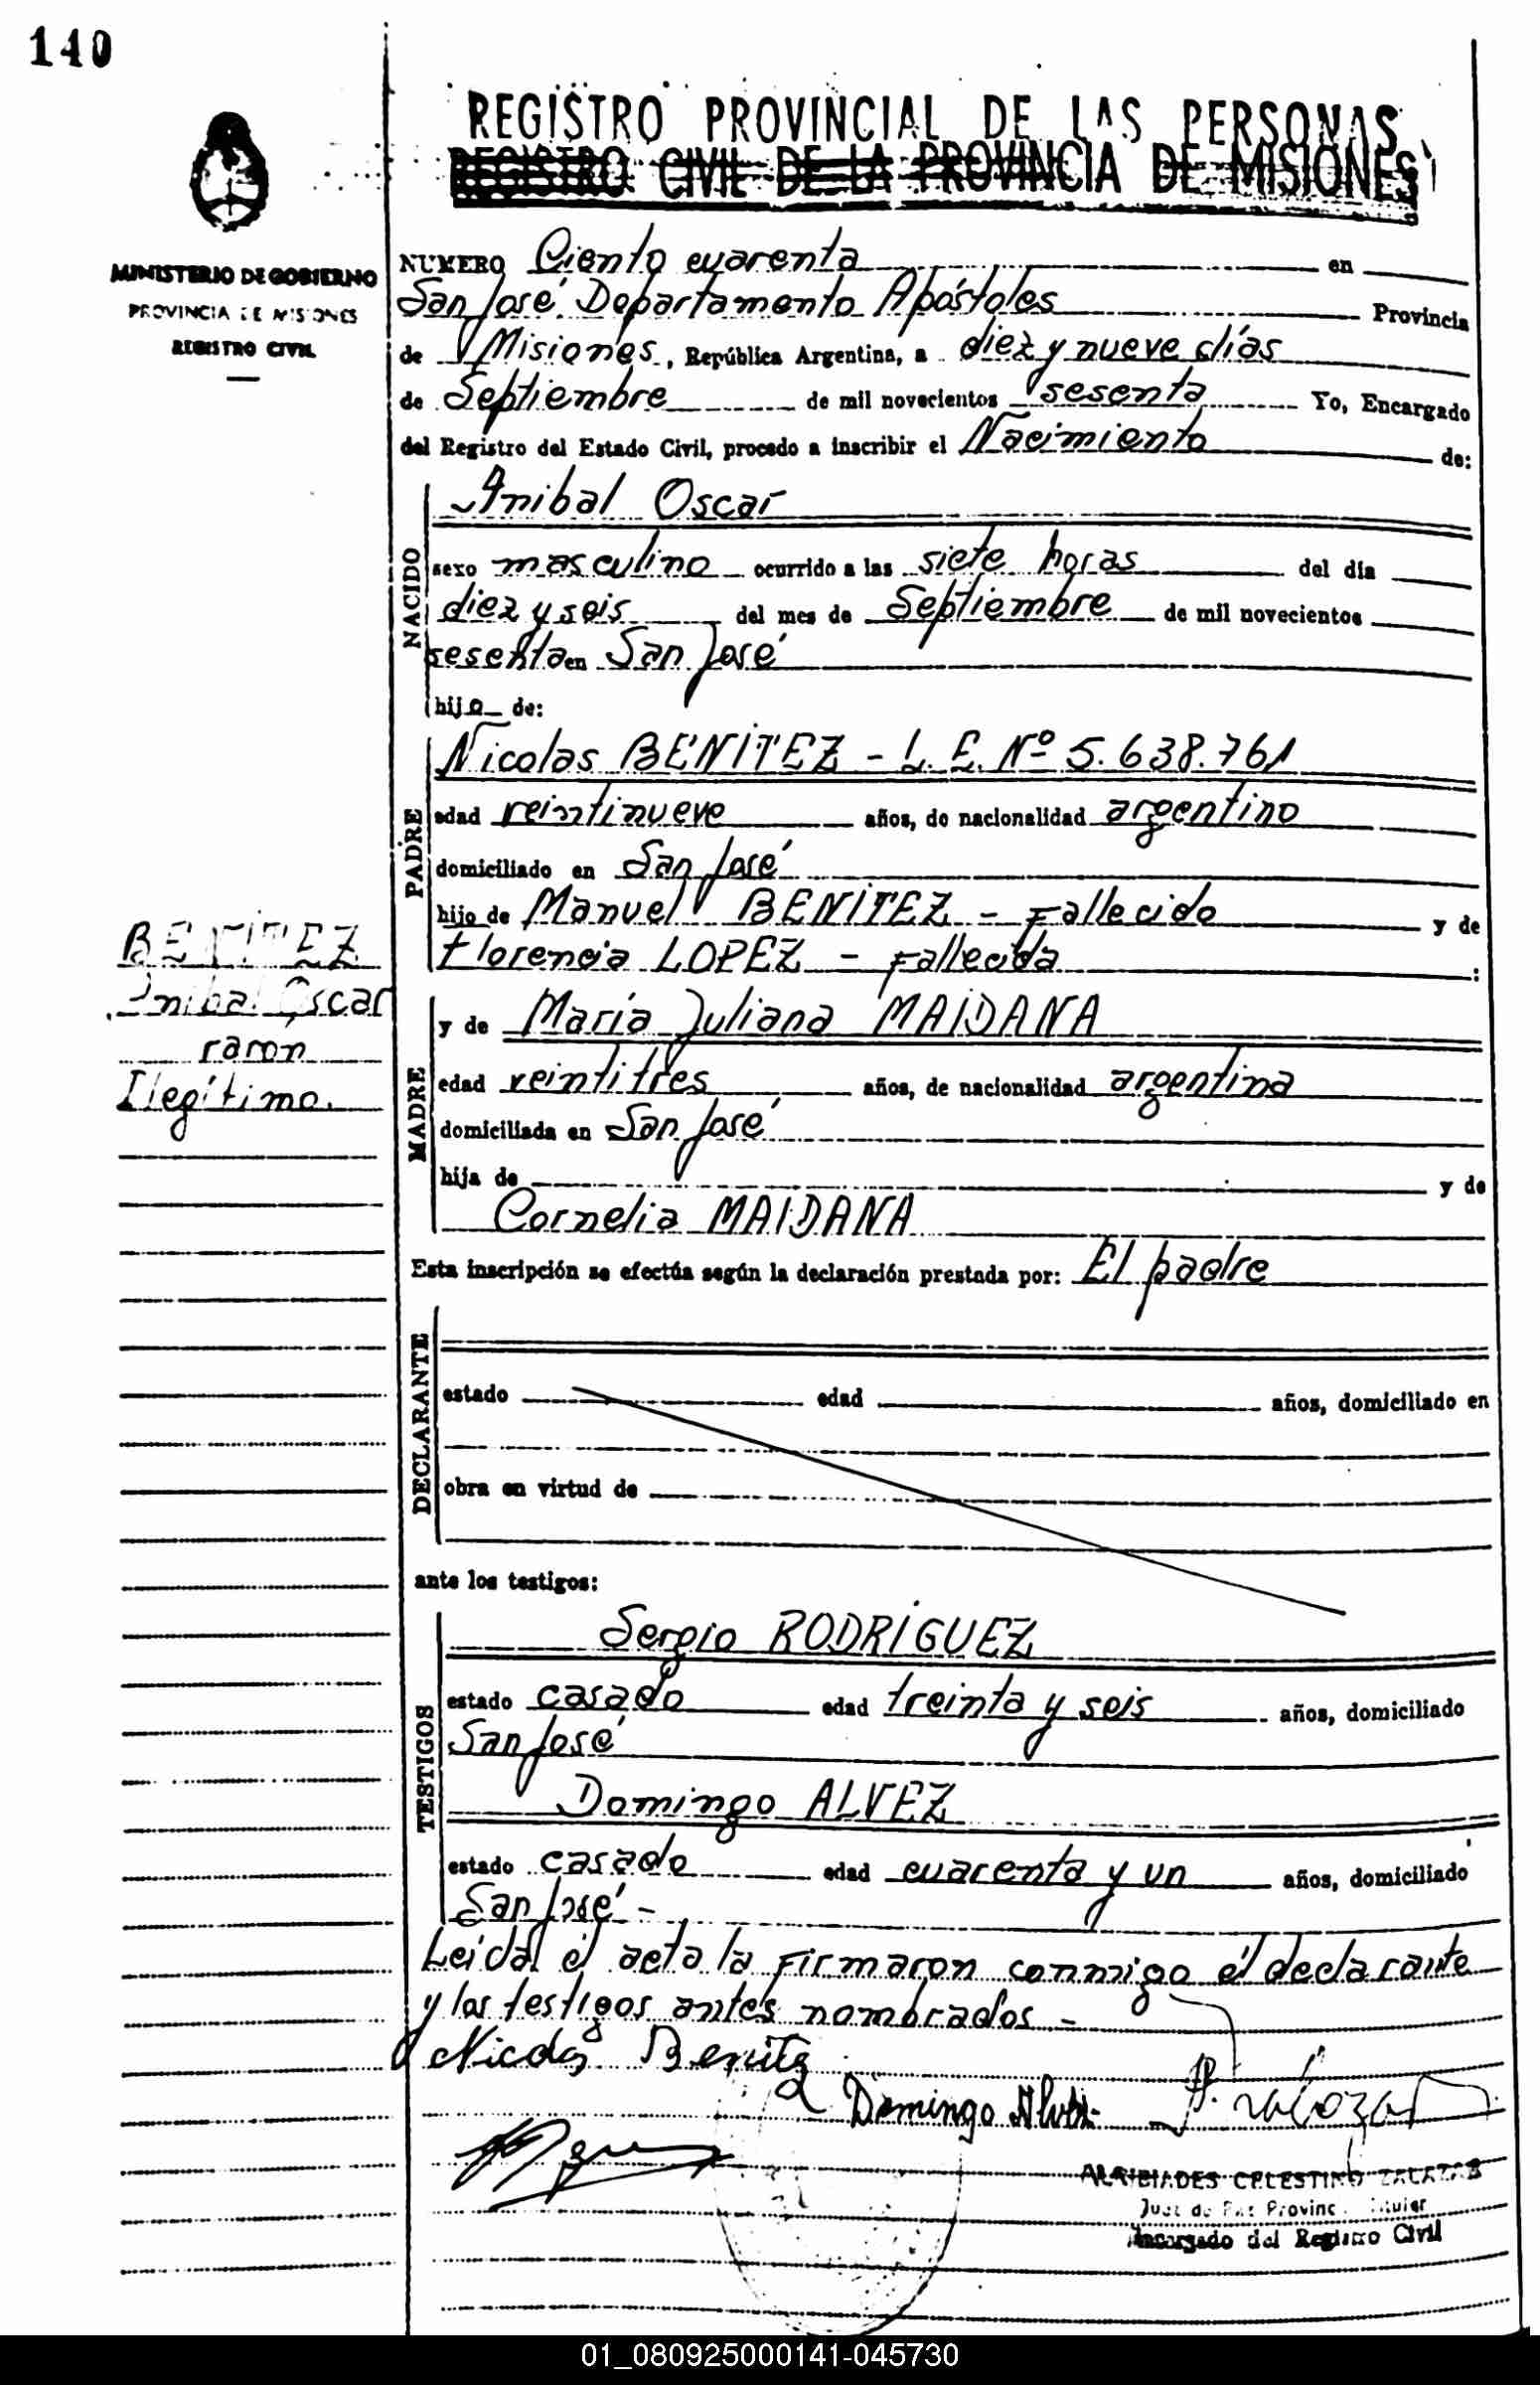 140
REGISTRO PROVINCIAL DE LAS PERSONAS
REGISTRO CIVIL DE LA PROVINCIA DE MISIONES
MINISTERIO DE GOBIERNO
PROVINCIA DE MISIONES
REGISTRO CIVIL
NUMERO Ciento cuarenta en
San José Departamento Apóstoles Provincia
de Misiones, República Argentina, a diez y nueve días
de Septiembre de mil novecientos sesenta Yo, Encargado
del Registro del Estado Civil, procedo a inscribir el Nacimiento de:
NACIDO
Anibal Oscar
sexo masculino ocurrido a las siete horas del día
diez y seis del mes de Septiembre de mil novecientos
sesenta en San José
hijo de:
PADRE
Nicolas BENITEZ - L. E. Nº 5.638.761
edad veintinueve años, de nacionalidad argentino
domiciliado en San José
hijo de Manuel BENITEZ - Fallecido y de
Florencia LOPEZ - Fallecida :
BENITEZ
Anibal Oscar
raron
Ilegítimo.
MADRE
y de María Juliana MAIDANA
edad veintitres años, de nacionalidad argentina
domiciliada en San José
hija de y de
Cornelia MAIDANA
Esta inscripción se efectúa según la declaración prestada por: El padre
DECLARANTE
estado edad años, domiciliado en
obra en virtud de
ante los testigos:
TESTIGOS
Sergio RODRIGUEZ
estado casado edad treinta y seis años, domiciliado
San José
Domingo ALVEZ
estado casado edad cuarenta y un años, domiciliado
San José -
Leida el acta la firmaron conmigo el declarante
y los testigos antes nombrados -
Nicolas Benitez
Domingo Alvez
ALCIBIADES CELESTINO ZALAZAR
Juez de Paz Provinc. Titular
Encargado del Registro Civil
01_080925000141-045730